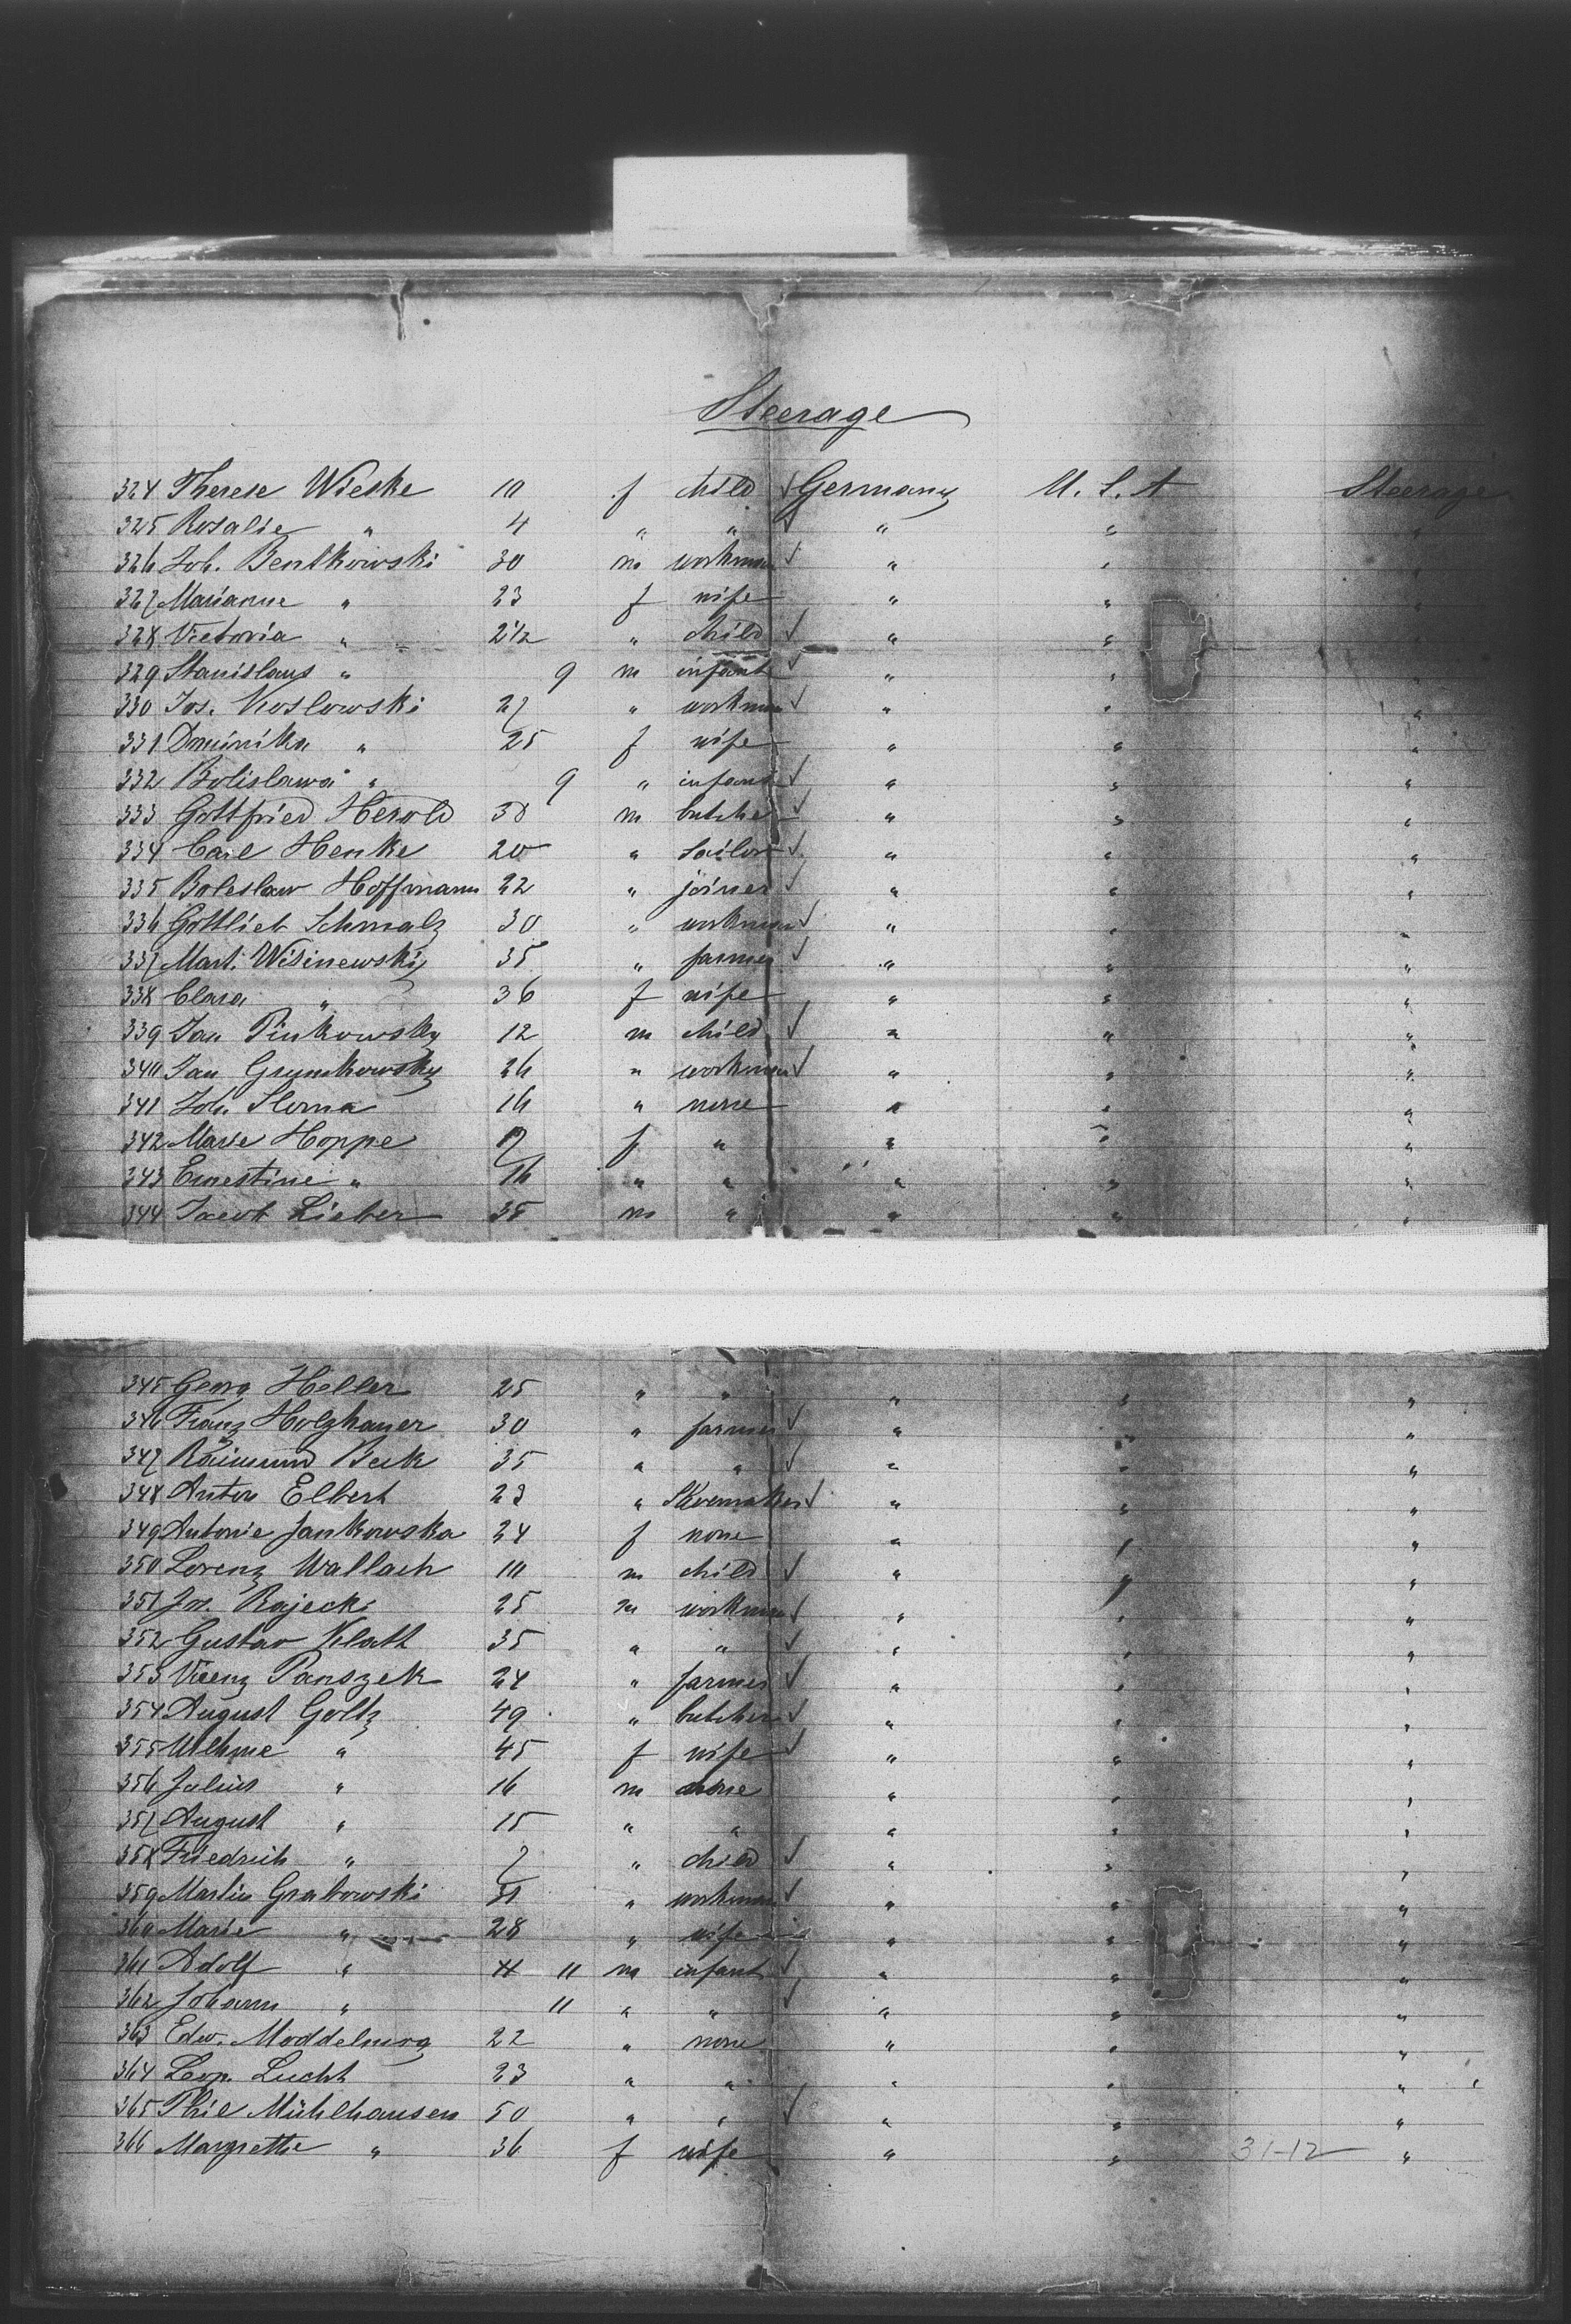 Steerage
324 Therese Wieske 10 f child ✓ Germany U.S.A Steerage
325 Rosalie " 4 " " ✓ " " "
326 Joh. Bentkowski 30 m workman ✓ " " "
327 Marianne " 23 f wife " " "
328 Victoria " 2 1/2 " child ✓ " " "
329 Stanislaus " 9 m infant ✓ " " "
330 Jos. Koslowski 27 " workman ✓ " " "
331 Dominika " 25 f wife " " "
332 Bolislawa " 9 " infant ✓ " " "
333 Gottfried Herold 38 m butcher ✓ " " "
334 Carl Henke 20 " sailor ✓ " " "
335 Boleslaw Hoffmann 22 " joiner ✓ " " "
336 Gottlieb Schmalz 30 " workman ✓ " " "
337 Mart. Wisinewsky 35 " farmer ✓ " " "
338 Clara " 36 f wife " " "
339 Jan Pinkowsky 12 m child ✓ " " "
340 Jan Grumkowsky 26 " workman ✓ " " "
341 Joh. Sloma 16 " none " " "
342 Marie Hoppe f " " " "
343 Ernestine " 16 " " " " "
344 Jacob Lieber 35 m " " " "
345 Georg Heller 25 " " " " "
346 Franz Holzhauer 30 " farmer ✓ " " "
347 Raimund Beck 35 " " ✓ " " "
348 Anton Elbert 23 " Shoemaker ✓ " " "
349 Antonie Jankowska 24 f none " " "
350 Lorenz Wallach 10 m child ✓ " " "
351 Jos. Rajecki 25 m workman ✓ " " "
352 Gustav Klatt 35 " " ✓ " " "
353 Vicenz Panszek 24 " farmer ✓ " " "
354 August Goltz 49 " butcher ✓ " " "
355 Wilhme " 45 f wife ✓ " " "
356 Julius " 16 m none " " "
357 August " 15 " " " " "
358 Friedrich " 7 " child ✓ " " "
359 Martin Grabowski 31 " workman ✓ " " "
360 Marie " 28 " wife " " "
361 Adolf " 11 m infant ✓ " " "
362 Johann " 11 " " ✓ " " "
363 Edw. Moddelmog 22 " none " " "
364 Leop. Lucht 23 " " " " "
365 Phil Mühlhausen 50 " " ✓ " " "
366 Margrethe " 36 f wife " " 31-12 "